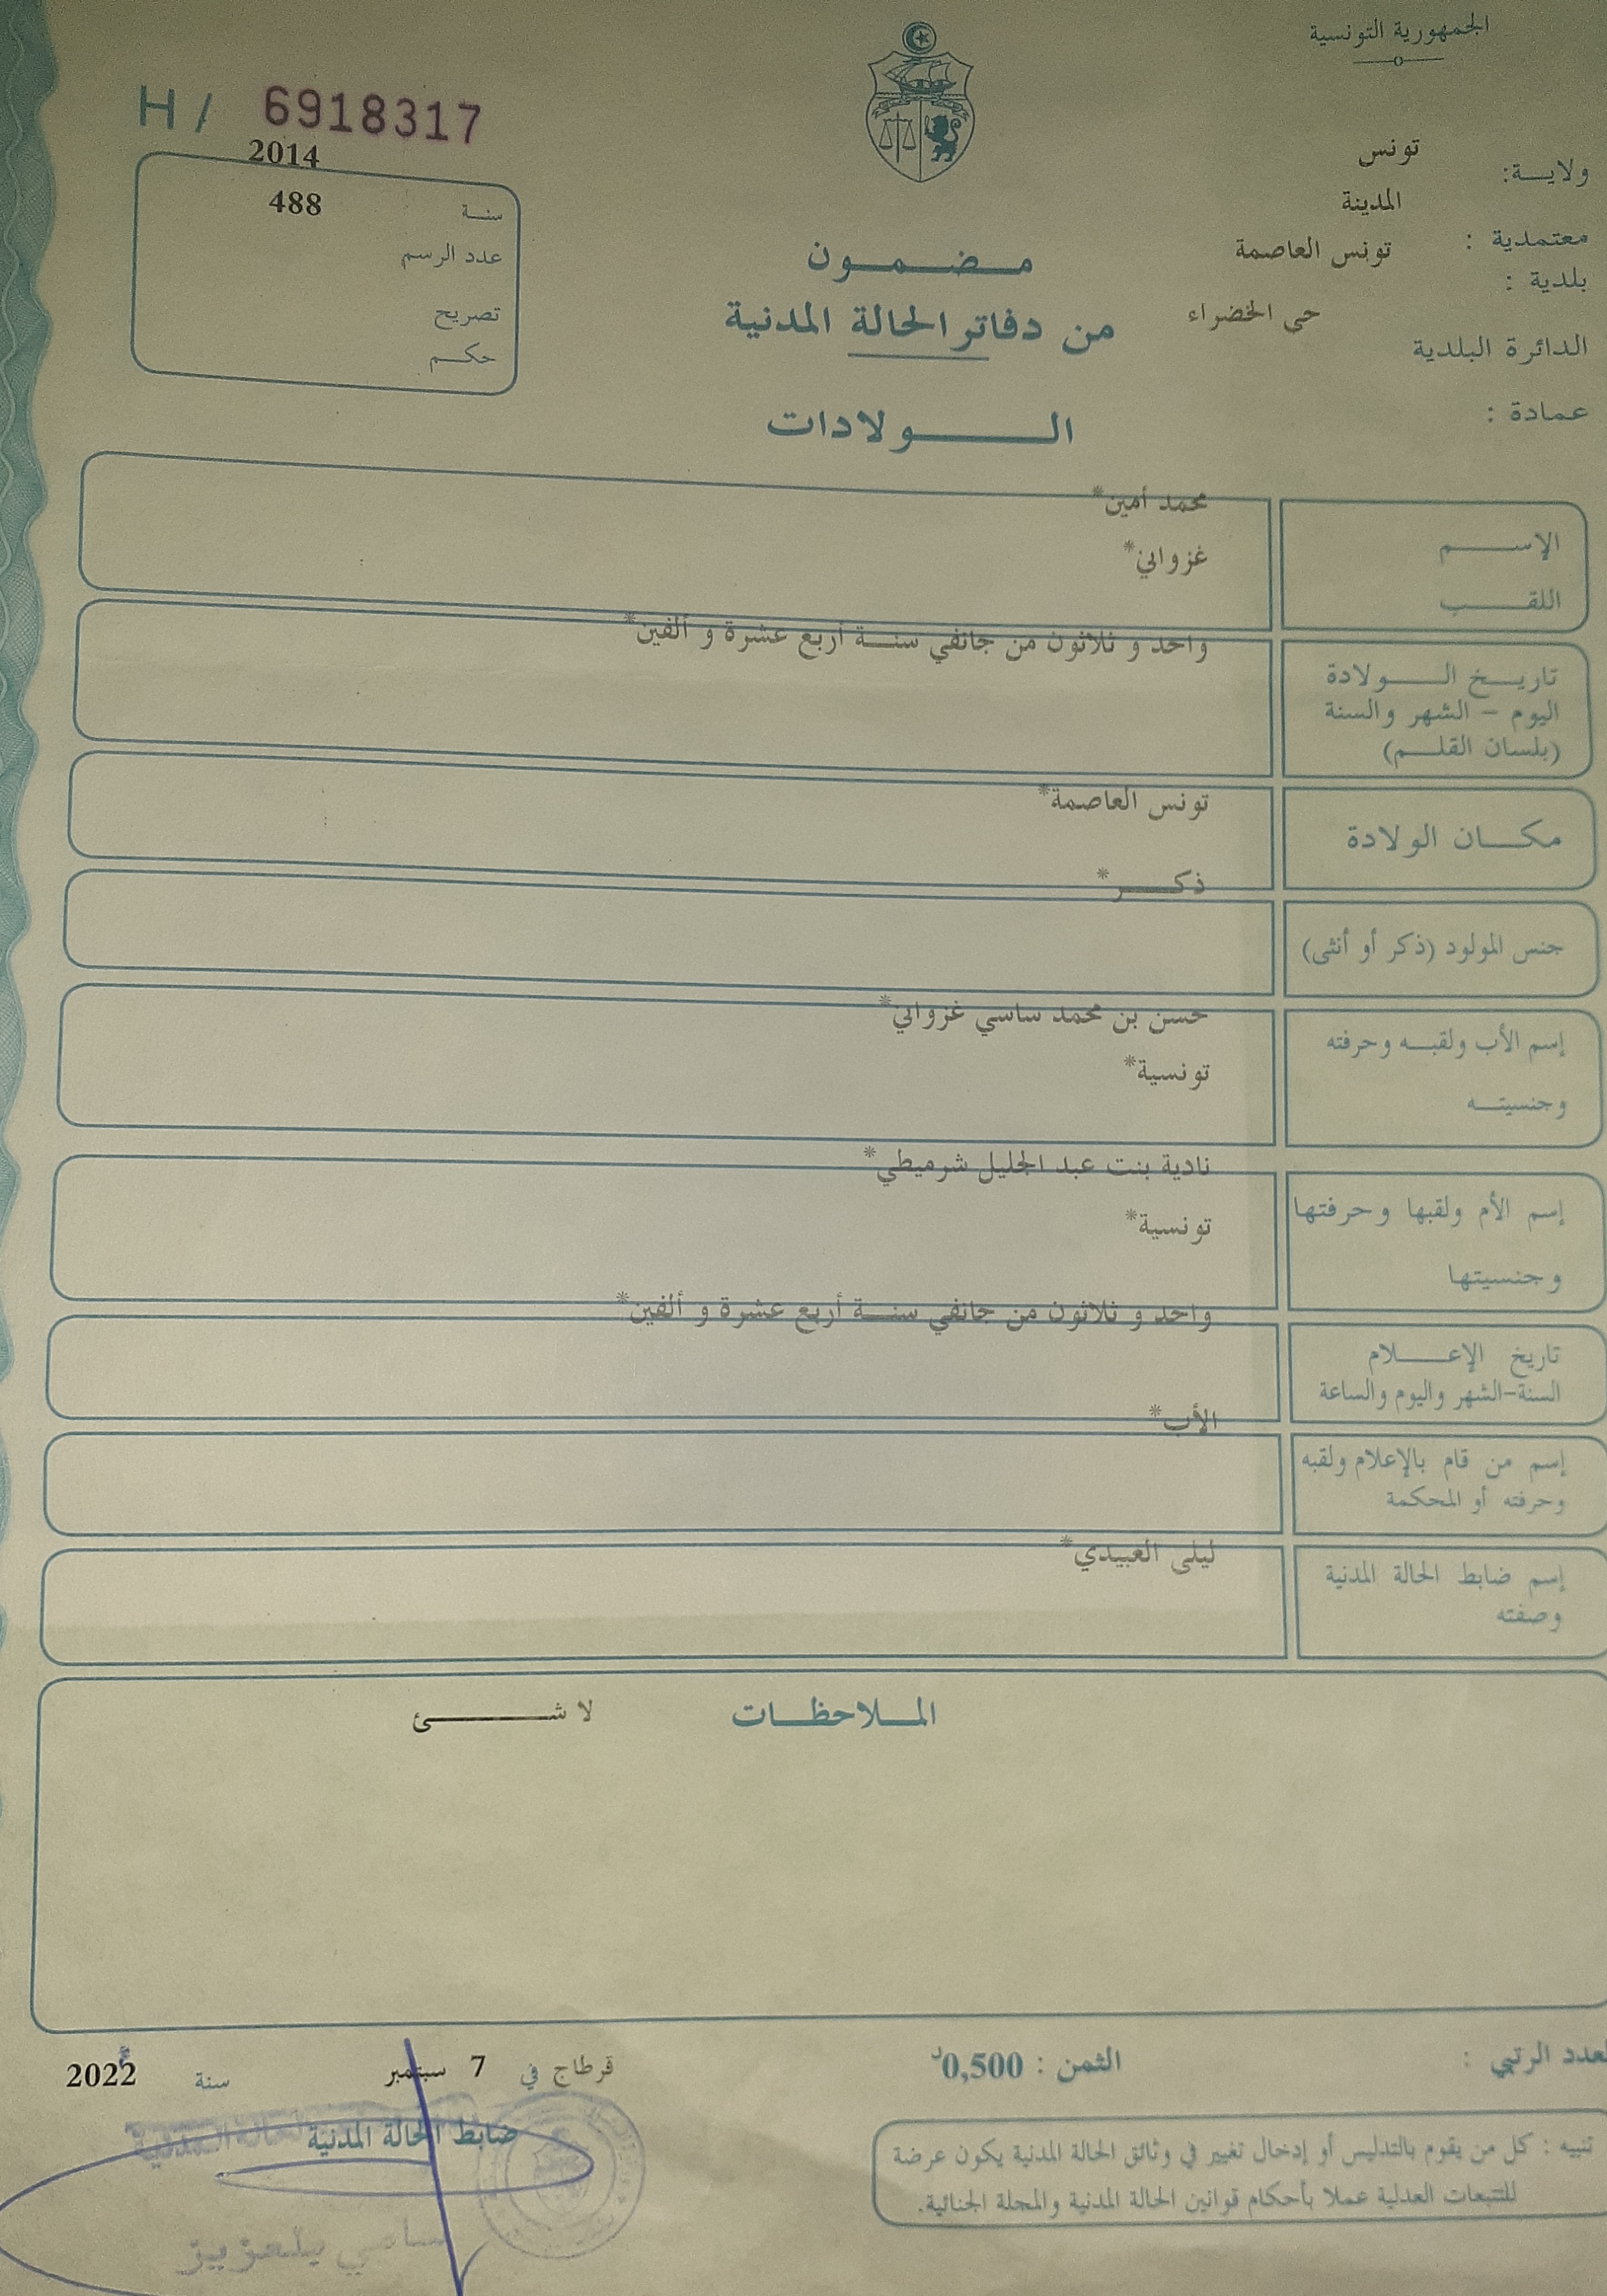 الجمهورية التونسية
H / 6918317
ولايــة: تونس
معتمدية : المدينة
بلدية : تونس العاصمة
الدائرة البلدية حي الخضراء
عمادة :
سنـة 2014
عدد الرسم 488
تصريح
حكـم
مـضـمـون
من دفاتر الحالة المدنية
الـولادات
الإســـم محمد أمين*
اللقــب غزواني*
تاريـخ الــولادة واحد و ثلاثون من جانفي سنــة أربع عشرة و ألفين*
اليوم - الشهر والسنة
(بلسان القلــم)
مكــان الولادة تونس العاصمة*
جنس المولود (ذكر أو أنثى) ذكـــر*
إسم الأب ولقبــه وحرفته حسن بن محمد ساسي غزواني*
وجنسيتــه تونسية*
إسم الأم ولقبها وحرفتها نادية بنت عبد الجليل شرميطي*
وجنسيتها تونسية*
تاريخ الإعــلام واحد و ثلاثون من جانفي سنــة أربع عشرة و ألفين*
السنة-الشهر واليوم والساعة
إسم من قام بالإعلام ولقبه الأب*
وحرفته أو المحكمة
إسم ضابط الحالة المدنية ليلى العبيدي*
وصفته
المـلاحظـات لا شـــئ
العدد الرتبي :
الثمن : 0,500د
قرطاج في 7 سبتمبر سنة 2022
ضابط الحالة المدنية
تنبيه : كل من يقوم بالتدليس أو إدخال تغيير في وثائق الحالة المدنية يكون عرضة
للتتبعات العدلية عملا بأحكام قوانين الحالة المدنية والمجلة الجنائية.
سامي بلعزيز